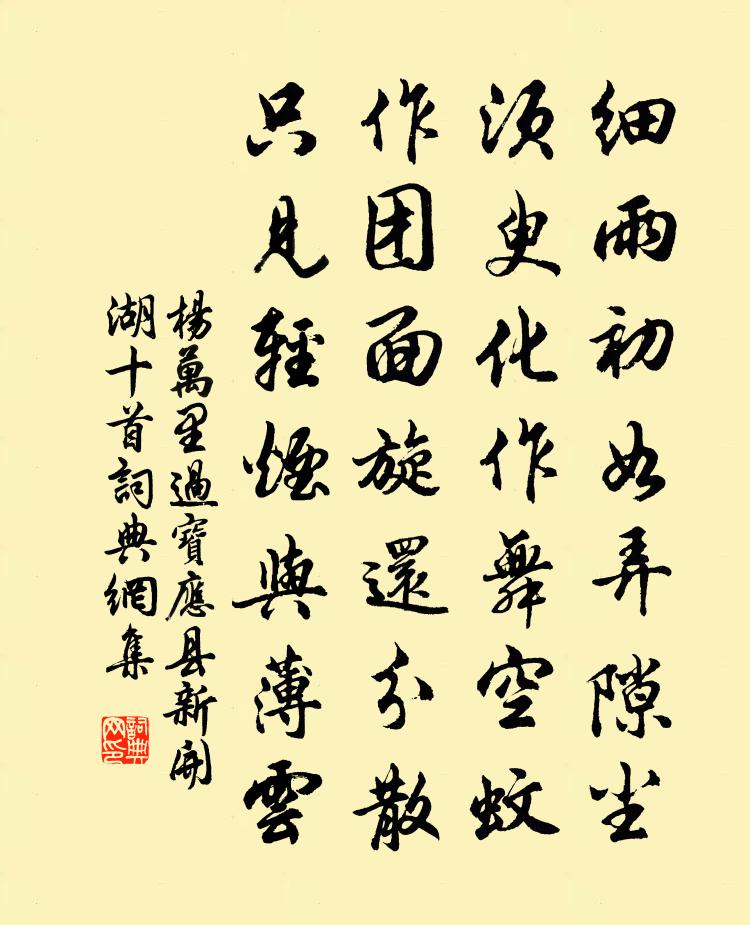 细雨初如弄隙尘
须臾化作舞空蚊
作团面旋还分散
只见轻烟与薄云
楊萬里過寶應县新開
湖十首詞典網集
詞典
网印